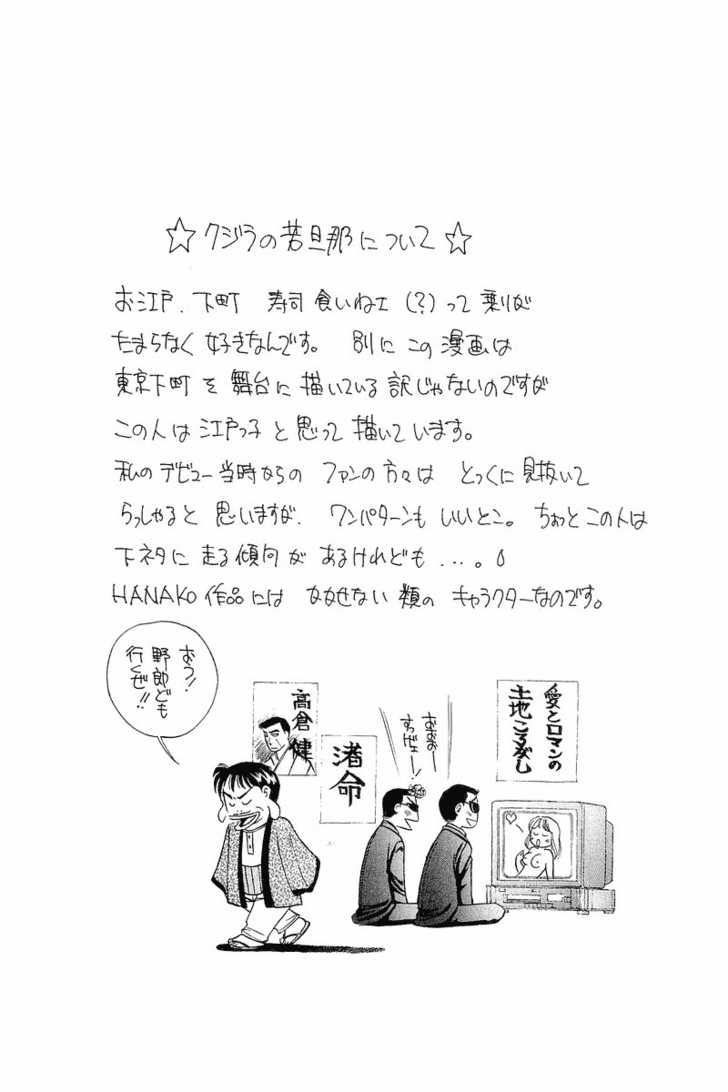 ☆クジラの若旦那について☆
お江戸、下町 寿司食いねェ(?)って乗りが
たまらなく好きなんです。 別にこの漫画は
東京下町を舞台に描いている訳じゃないのですが
この人は江戸っ子と思って描いています。
私のデビュー当時からの ファンの方々は とっくに見抜いて
らっしゃると思いますが、ワンパターンもいいとこ。ちょっとこの人は
下ネタに走る傾向があるけれども…。
HANAKO作品には かかせない類のキャラクターなのです。
おう!
野郎ども
行くぜ!!
高倉健
渚命
おおー
すっげェー!
愛とロマンの
土地ころがし